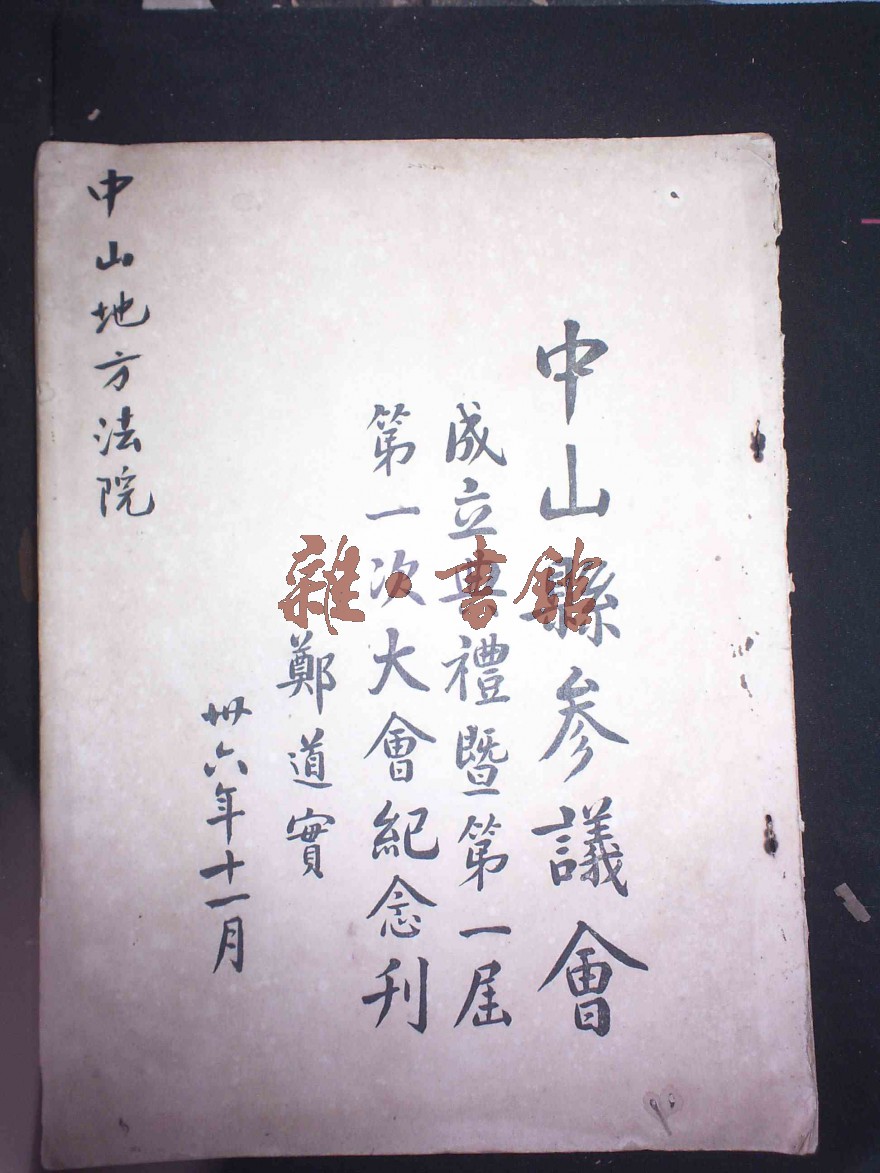 中山縣參議會
成立典禮暨第一屆
第一次大會紀念刊
鄭道實
卅六年十一月
中山地方法院
雜·書館